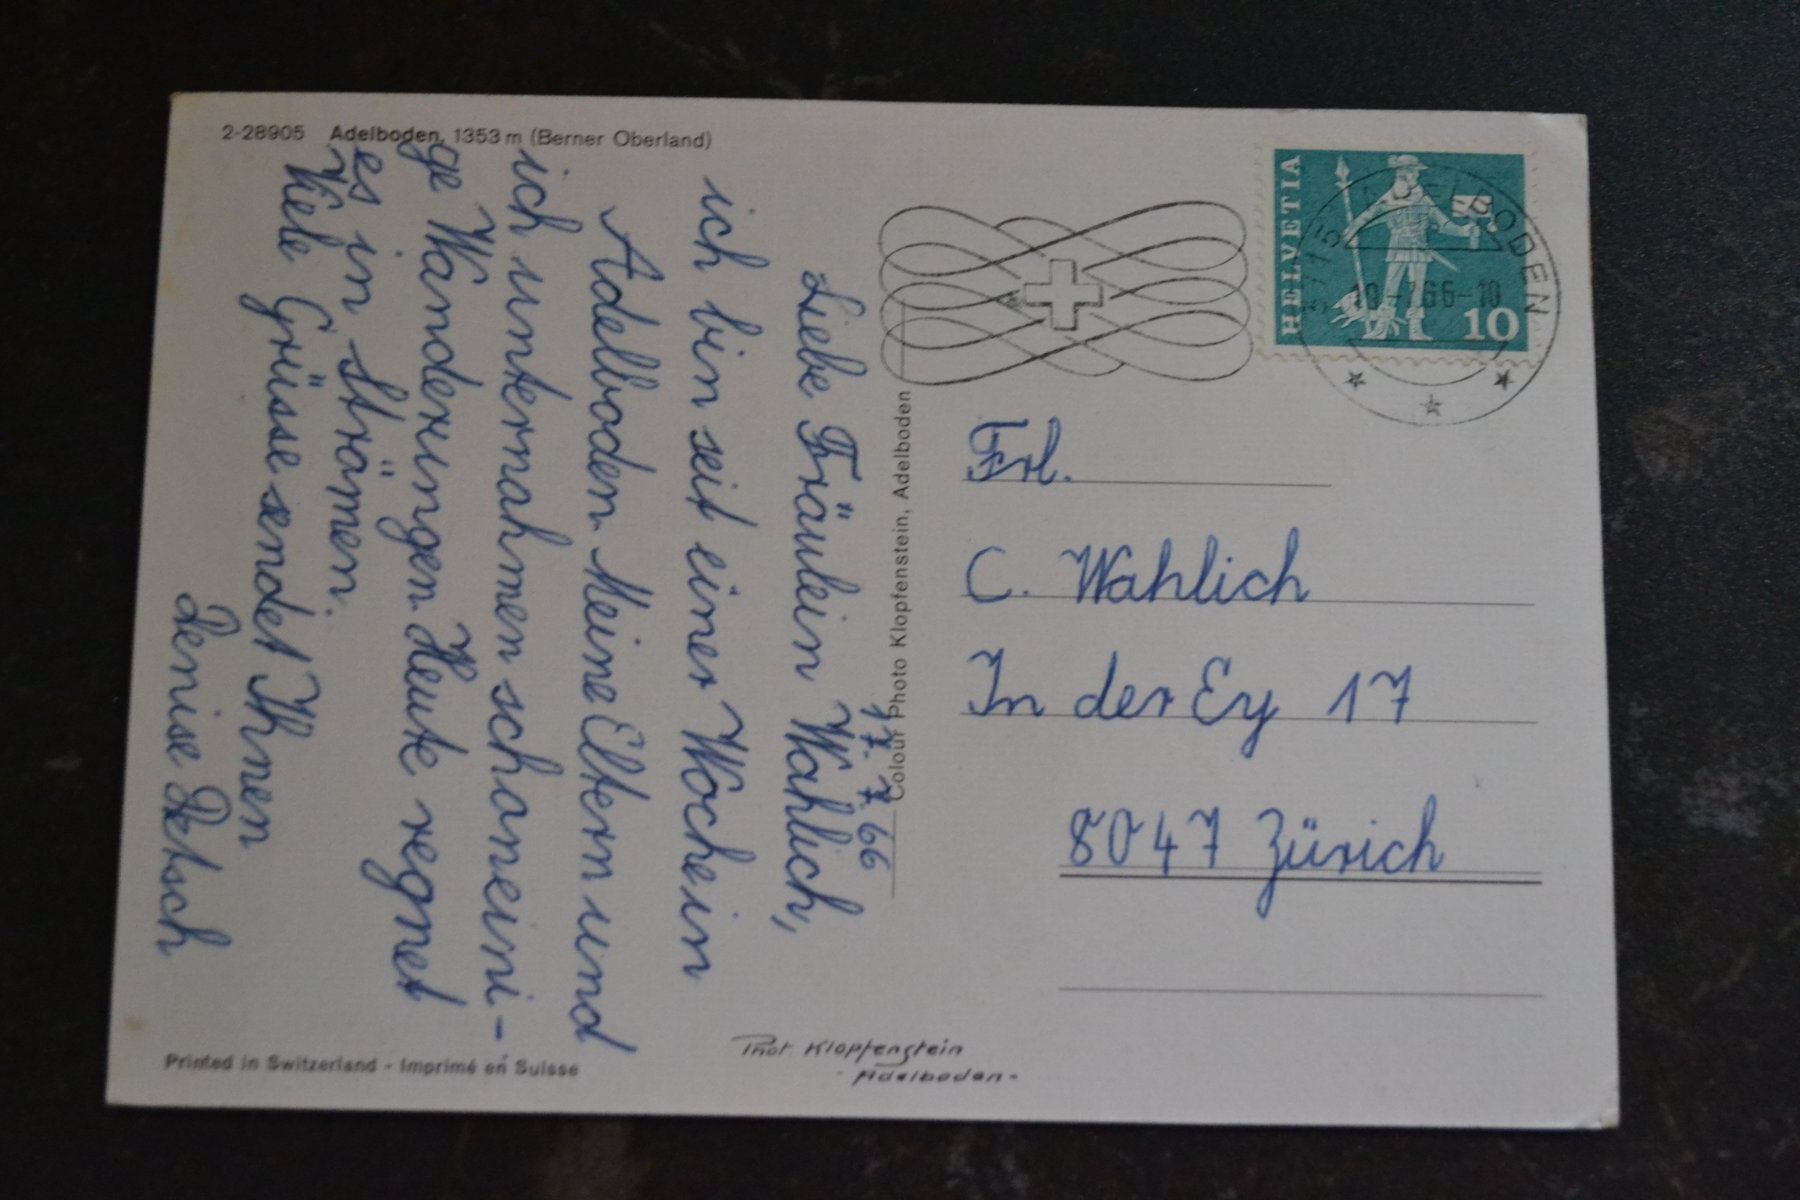 2-28905 Adelboden, 1353 m (Berner Oberland)
17. 7. 66
Liebe Fräulein Wahlich,
ich bin seit einer Woche in
Adelboden. Meine Eltern und
ich unternahmen schon eini-
ge Wanderungen. Heute regnet
es in Strömen.
Viele Grüsse sendet Ihnen
Denise Petsch
Colour Photo Klopfenstein, Adelboden
HELVETIA
10
3715 ADELBODEN
-7.66-10
Frl.
C. Wahlich
In der Ey 17
8047 Zürich
Phot. Klopfenstein
- Adelboden -
Printed in Switzerland - Imprimé en Suisse